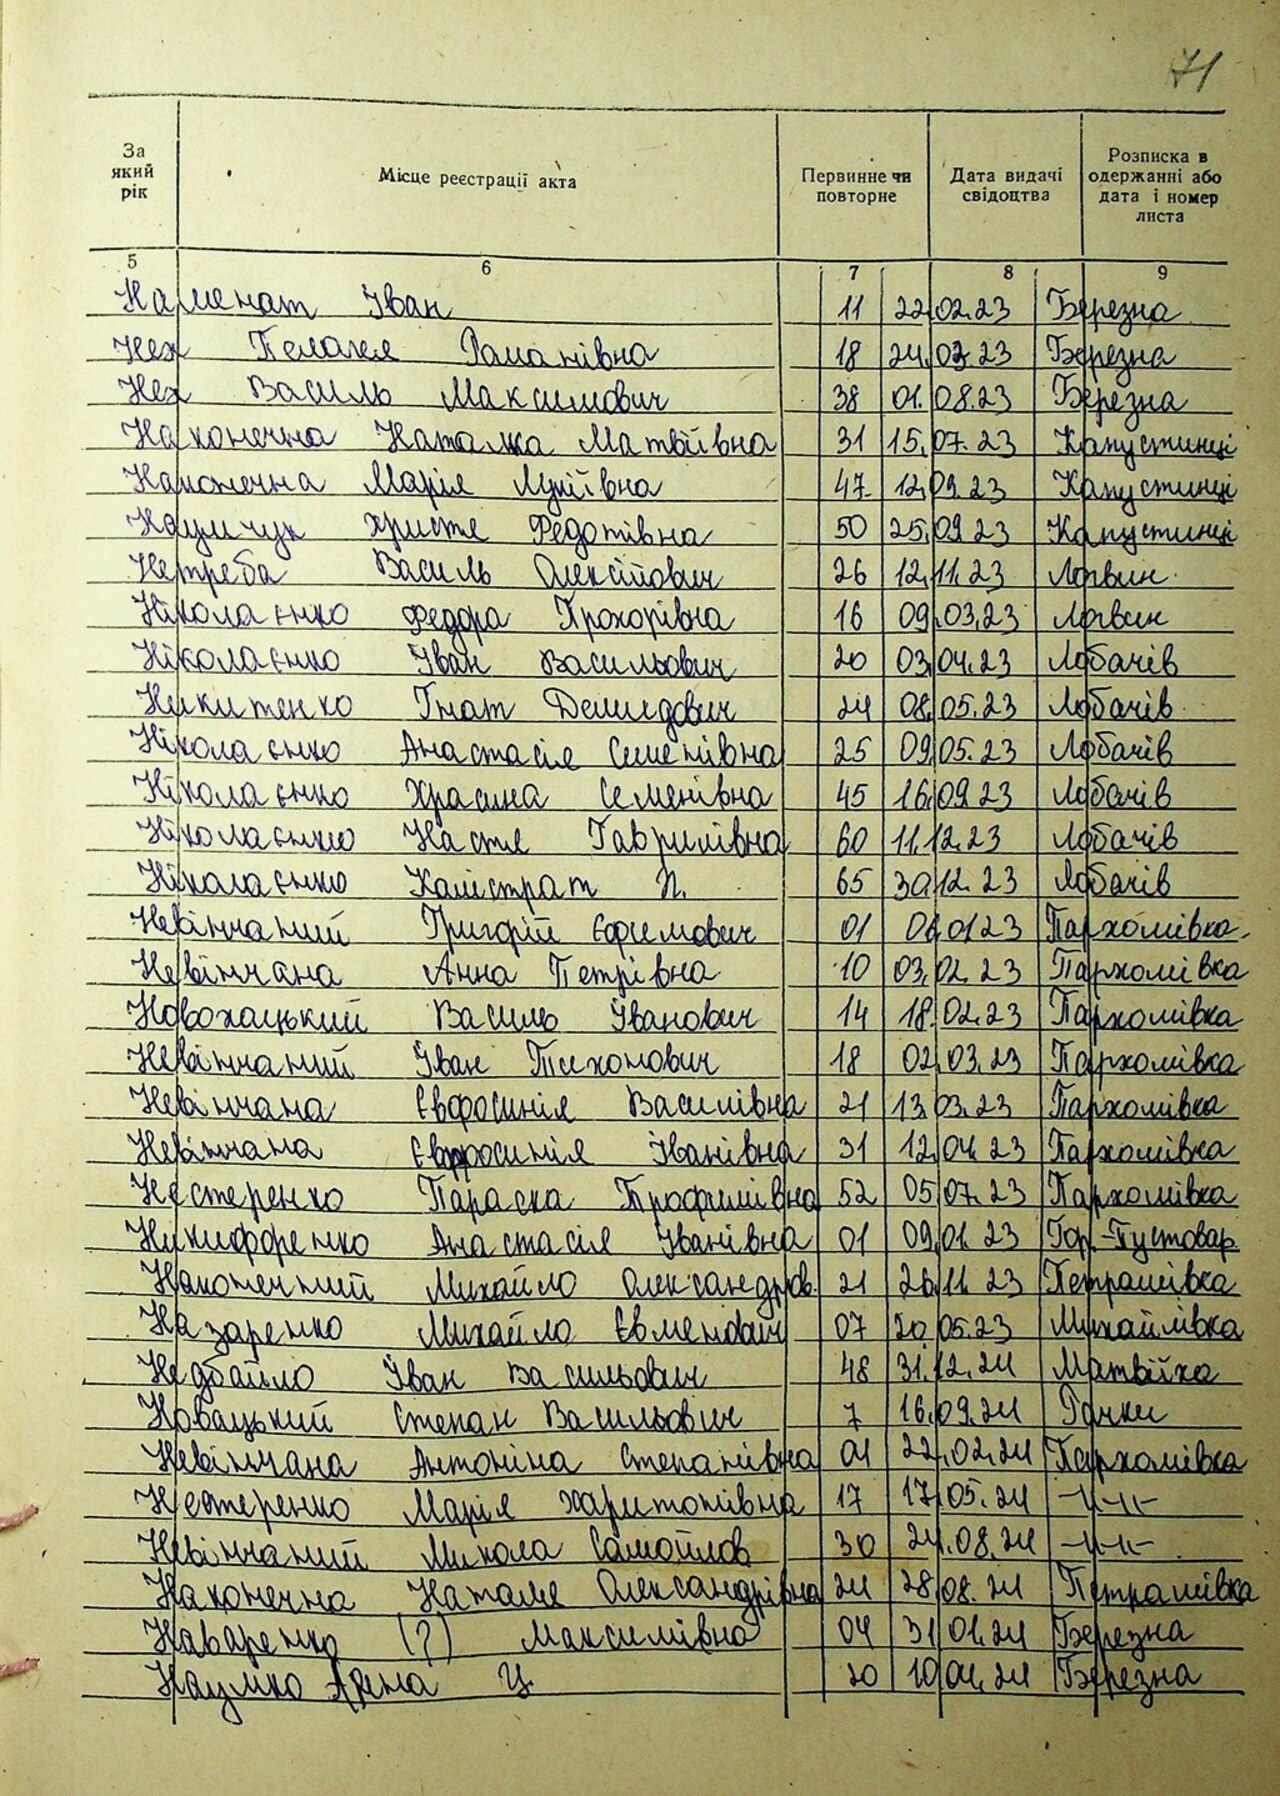 71
За який рік
Місце реєстрації акта
Первинне чи повторне
Дата видачі свідоцтва
Розписка в одержанні або дата і номер листа
5 6 7 8 9
Іван 11 22.02.23 Березна
Нех Пелагея Романівна 18 24.03.23 Березна
Нех Василь Максимович 38 01.08.23 Березна
Наконечна Наталка Матвіївна 31 15.07.23 Капустинці
Наконечна Марія Лукіївна 47 12.09.23 Капустинці
Наумчук Христя Федотівна 50 25.09.23 Капустинці
Нетреба Василь Олексійович 26 12.11.23 Логвин
Ніколаєнко Федора Прохорівна 16 09.03.23 Логвин
Ніколаєнко Іван Васильович 20 03.04.23 Лобачів
Никитенко Гнат Демидович 24 08.05.23 Лобачів
Ніколаєнко Анастасія Семенівна 25 09.05.23 Лобачів
Ніколаєнко Храсина Семенівна 45 16.09.23 Лобачів
Ніколаєнко Настя Гаврилівна 60 11.12.23 Лобачів
Ніколаєнко Калістрат П. 65 30.12.23 Лобачів
Невінчаний Григорій Єфимович 01 01.23 Пархомівка
Невінчана Анна Петрівна 10 03.02.23 Пархомівка
Новохацький Василь Іванович 14 18.02.23 Пархомівка
Невінчаний Іван Тихонович 18 02.03.23 Пархомівка
Невінчана Євфосинія Василівна 21 13.03.23 Пархомівка
Невінчана Євфросинія Іванівна 31 12.04.23 Пархомівка
Нестеренко Параска Трофимівна 52 05.07.23 Пархомівка
Никифоренко Анастасія Іванівна 01 09.01.23 Гор.-Пустовар.
Наконечний Михайло Олександров. 21 26.11.23 Петрашівка
Назаренко Михайло Євменович 07 20.05.23 Михайлівка
Недбайло Іван Васильович 48 31.12.24 Матвіїха
Новацький Степан Васильович 7 16.09.24 Рачки
Невінчана Антоніна Степанівна 01 22.02.24 Пархомівка
Нестеренко Марія Харитонівна 17 17.05.24 -//-//-
Невінчаний Микола Самойлов 30 24.08.24 -//-//-
Наконечна Наталя Олександрівна 24 28.08.24 Петрашівка
Наваренко (?) Максимівна 04 31.01.24 Березна
Наумко Ярина Ц. 20 10.04.24 Березна